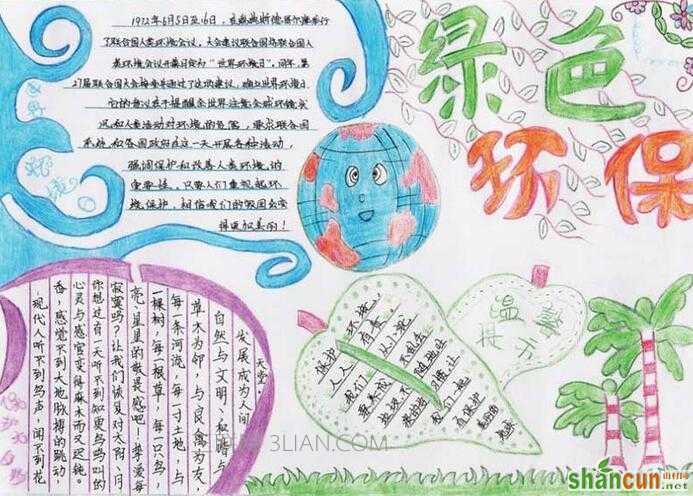 绿色
环保
1972年6月5日至16日,在瑞典斯德哥尔摩举行
了联合国人类环境会议,大会建议联合国将联合国人
类环境会议开幕日定为“世界环境日”。同年,第
27届联合国大会接受并通过了这项建议,确立世界环境日
它的意议在于提醒全世注意全球环境状
况和人类活动对环境的危害,要求联合国
系统和各国政府在这一天开展各种活动,
强调保护和改善人类环境的
重要性。只要人们重视起环
境保护,相信我们的家园会变
得更加美丽!
世界
环
境
现代人听不到鸟声,闻不到花
香,感觉不到大地脉搏的跳动,
心灵与感官变得麻木而又迟钝。
你想过有一天听不到知更鸟鸟叫的
寂寞吗?让我们恢复对太阳、月
亮、星星的敬畏感吧!挚爱每
一棵树,每一根草,每一只鸟,
每一条河流,每一寸土地,与
草木为邻,与良禽为友,
自然与文明、和谐与
发展成为人间
天堂。
温馨
提示
保护环境
人人有责
3LIAN.COM
shancun